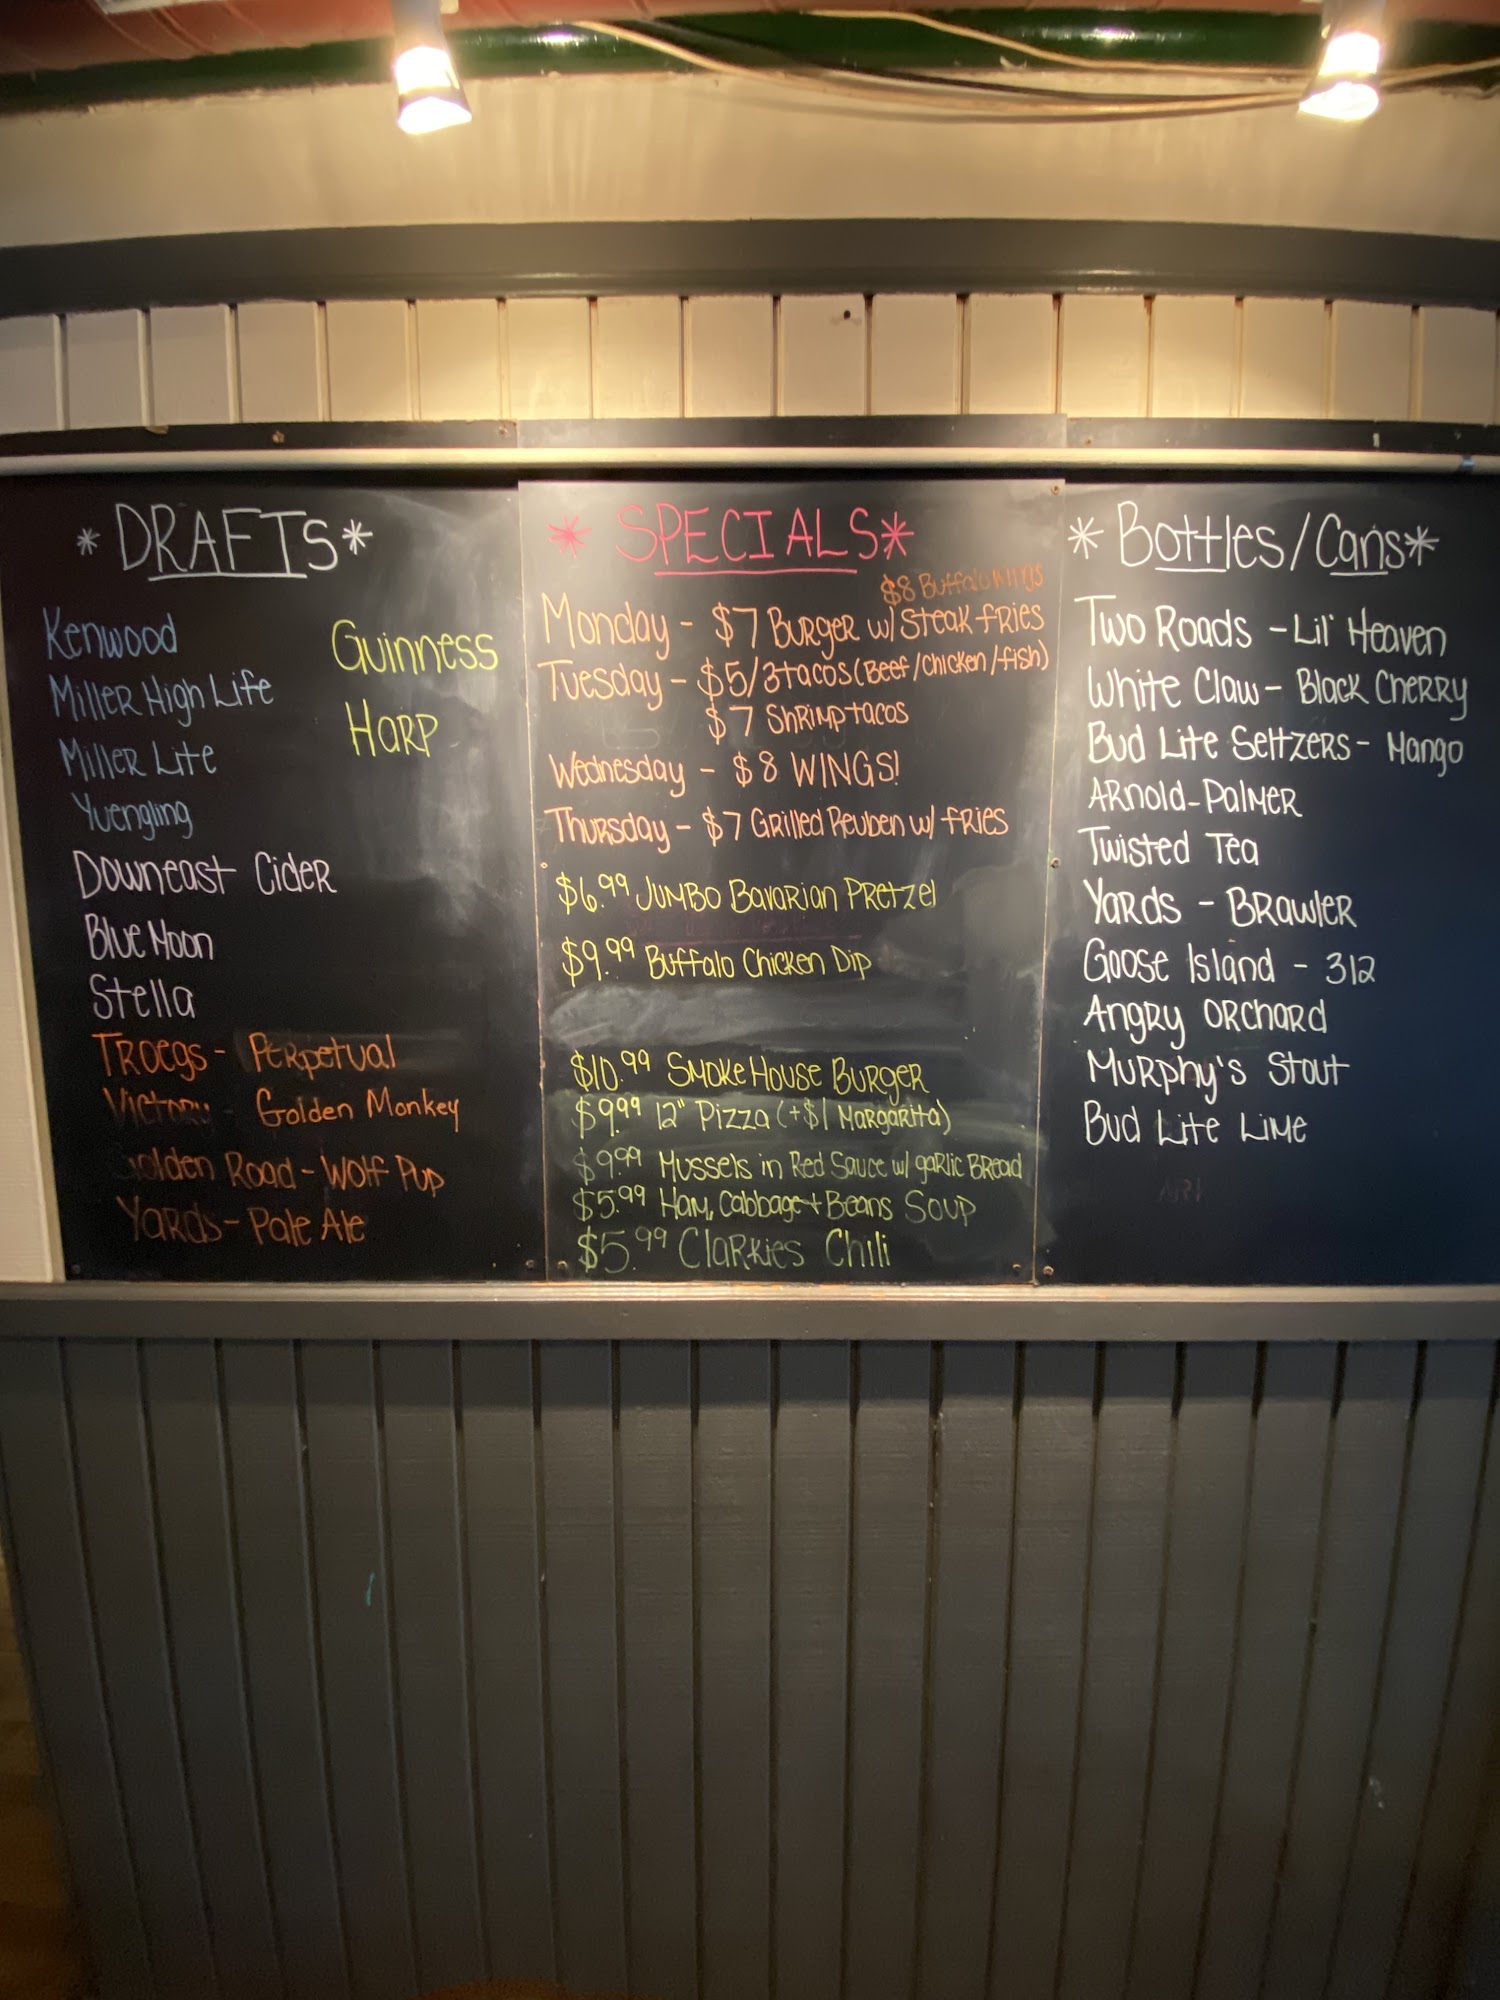 *DRAFTS*
Kenwood
Miller High Life
Miller Lite
Yuengling
Downeast Cider
Blue Moon
Stella
Troegs - Perpetual
Victory - Golden Monkey
Golden Road - Wolf Pup
Yards - Pale Ale
Guinness
Harp
* SPECIALS*
$8 Buffalo Wings
Monday - $7 Burger w/ Steak fries
Tuesday - $5/3 tacos (Beef/chicken/fish)
$7 Shrimp tacos
Wednesday - $8 WINGS!
Thursday - $7 Grilled Reuben w/ fries
$6.99 JUMBO Bavarian Pretzel
$9.99 Buffalo Chicken Dip
$10.99 Smoke House Burger
$9.99 12" Pizza (+$1 Margarita)
$9.99 Mussels in Red Sauce w/ garlic Bread
$5.99 Ham, Cabbage + Beans Soup
$5.99 Clarkies Chili
* Bottles/Cans*
Two Roads - Lil' Heaven
White Claw - Black Cherry
Bud Lite Seltzers - Mango
Arnold-Palmer
Twisted Tea
Yards - Brawler
Goose Island - 312
Angry Orchard
Murphy's Stout
Bud Lite Lime